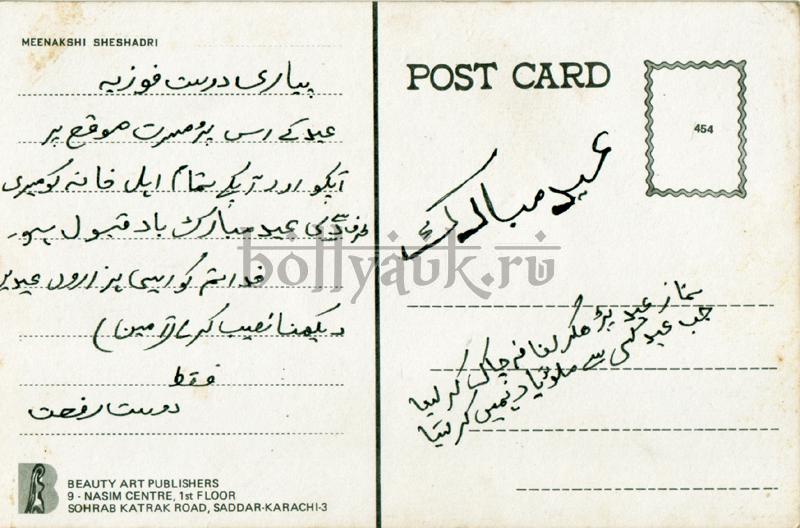 MEENAKSHI SHESHADRI
پیاری دوست فوزیہ
عید کے اس پرمسرت موقع پر
آپکو اور آپکے تمام اہل خانہ کو میری
طرف سے عید مبارک باد قبول ہو۔
خدا تم کو ایسی ہزاروں عیدیں
دیکھنا نصیب کرے (آمین)
فقط
دوست رفعت
BEAUTY ART PUBLISHERS
9 - NASIM CENTRE, 1st FLOOR
SOHRAB KATRAK ROAD, SADDAR-KARACHI-3
POST CARD
454
عید مبارک
نماز عید پڑھکر لفافہ چاک کر لینا
جب عید کسی سے ملو یاد ہمیں کر لینا
bollyauk.ru